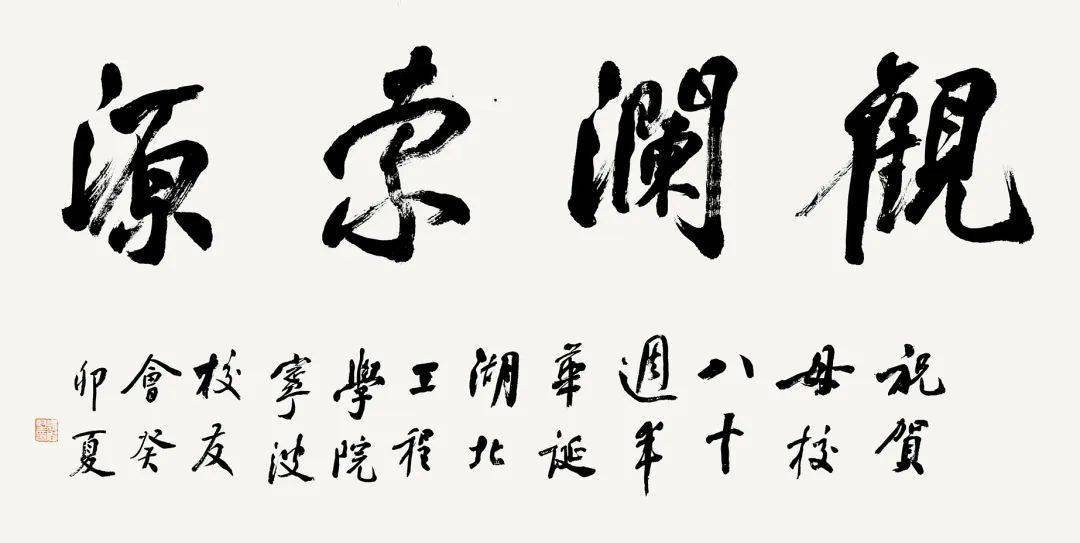 觀瀾索源
祝賀
母校
八十
週年
華誕
湖北
工程
學院
寧波
校友
會癸
卯夏